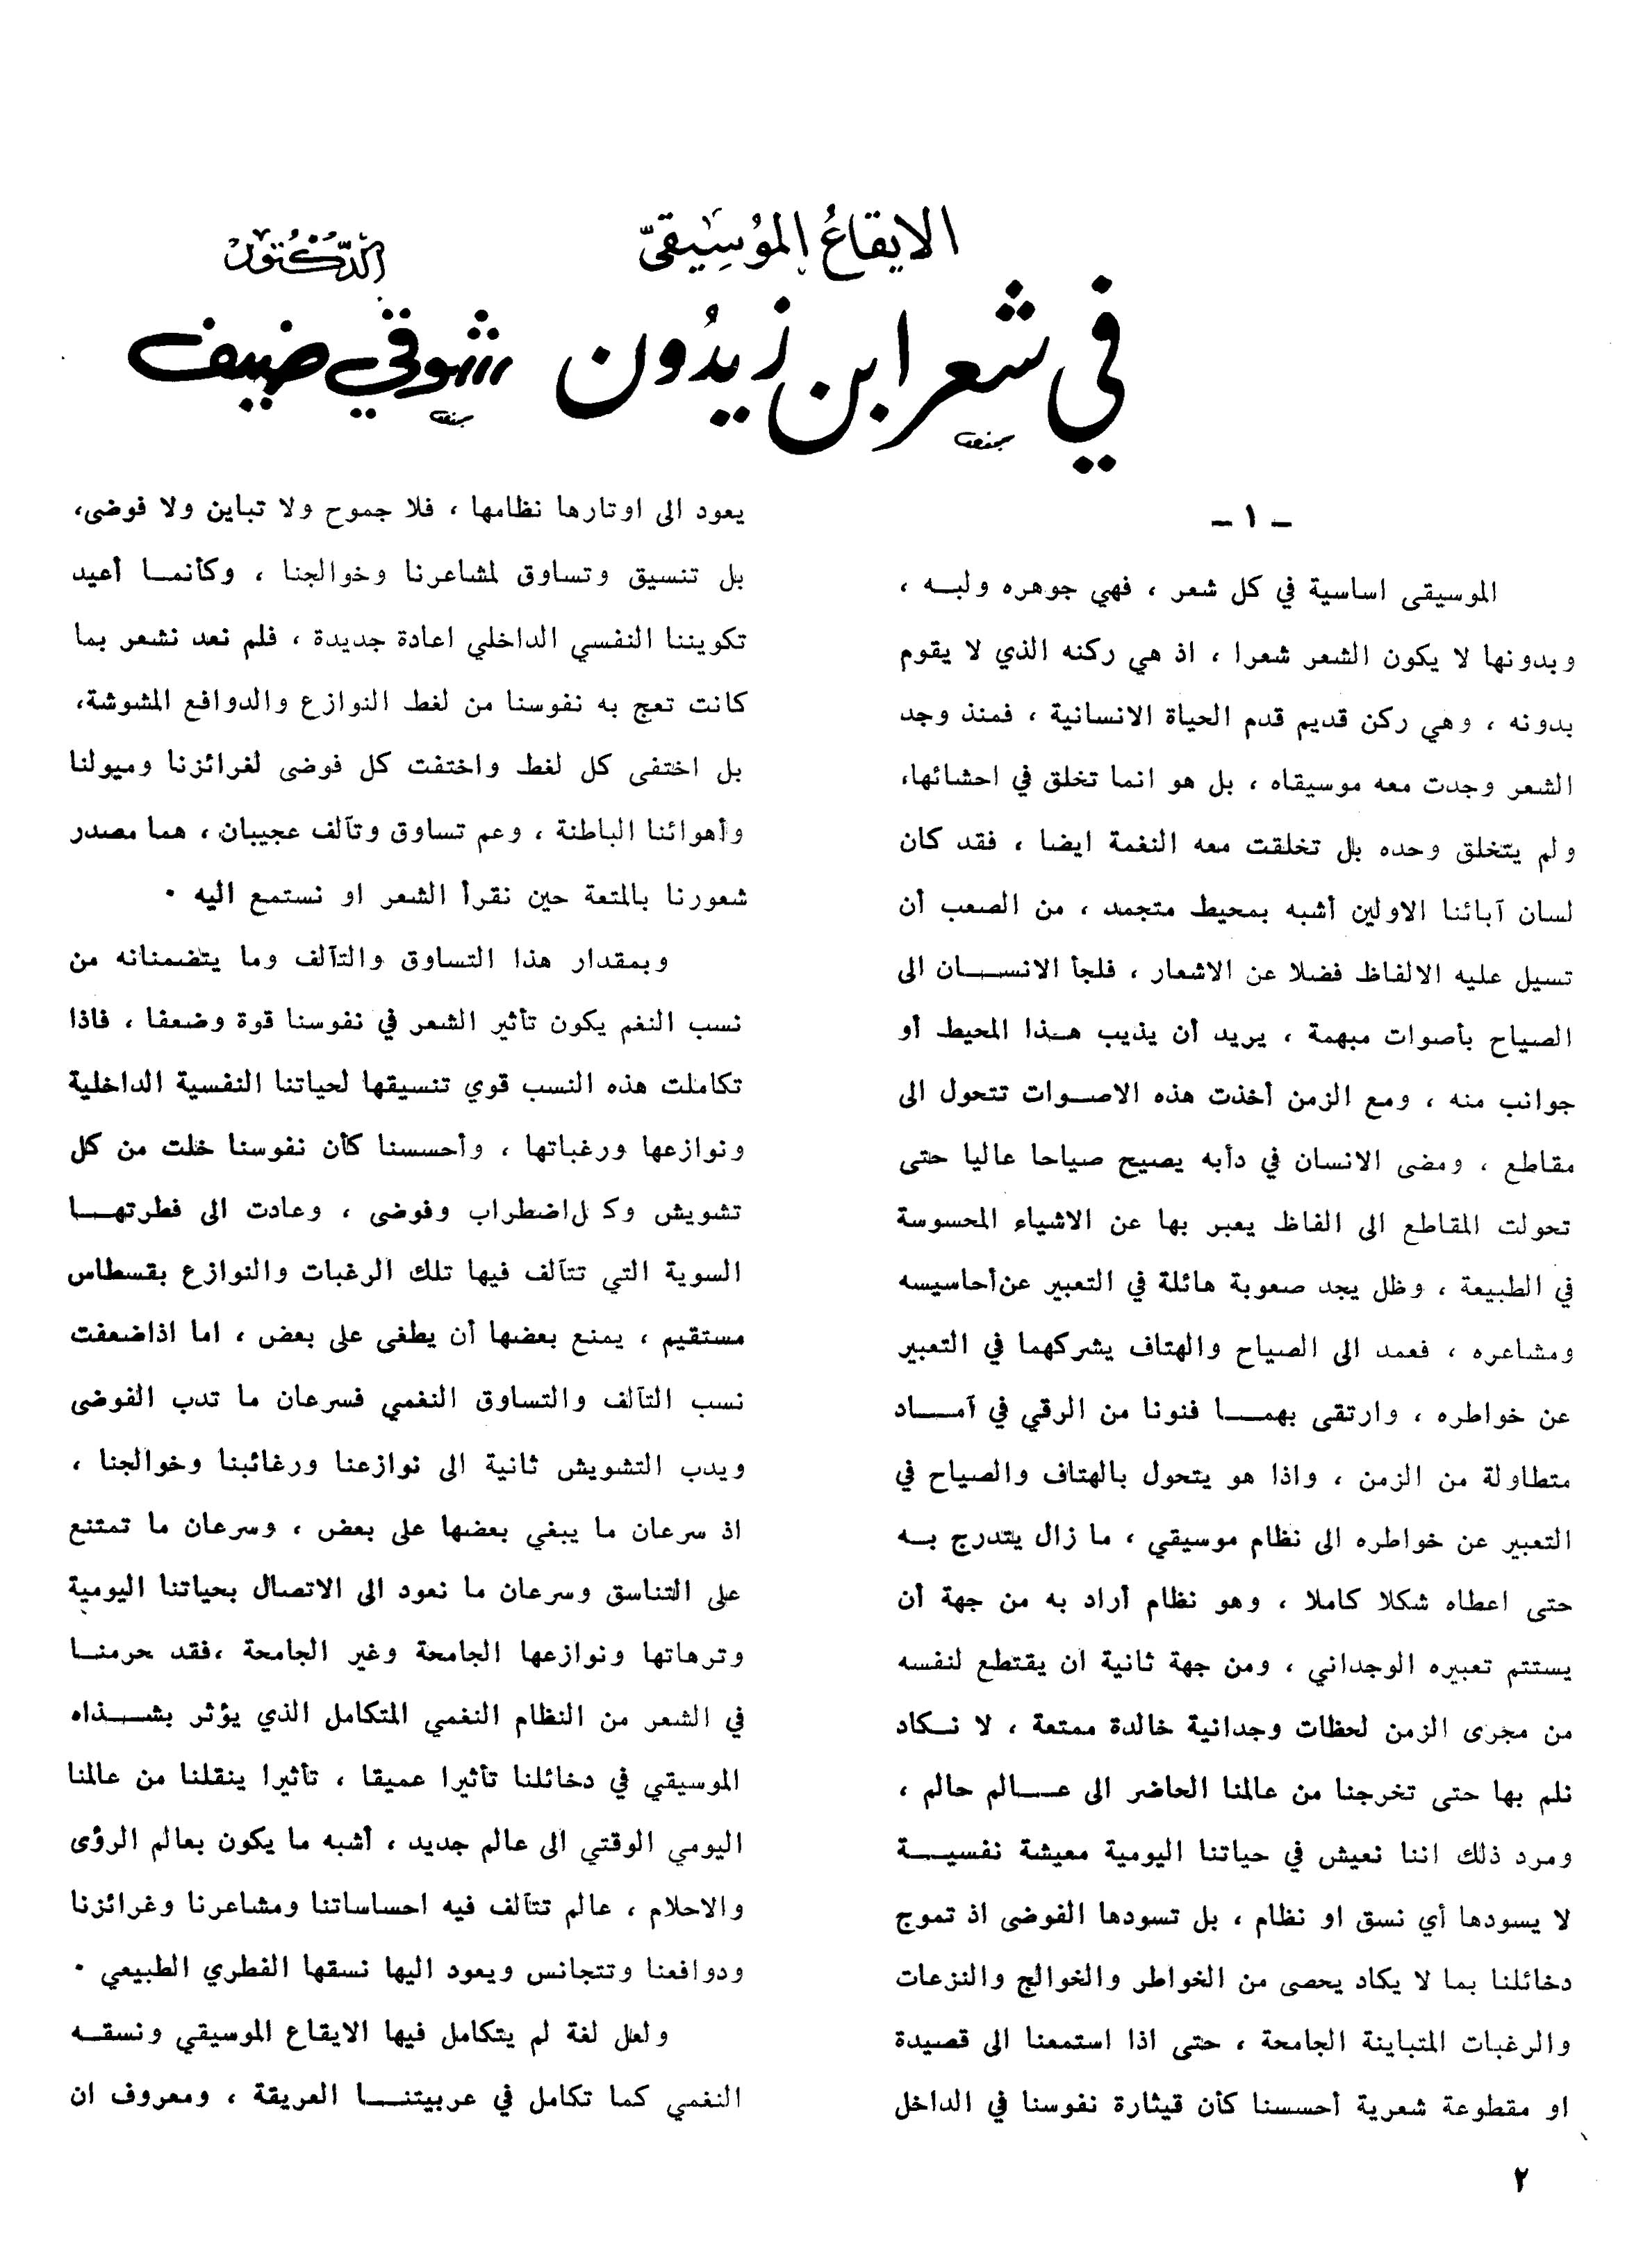 الايقاعُ الموُسِيقىّ
في شعر ابن زيدُون
الدّكتور
شوقي ضيف
- ١ -
الموسيقى اساسية في كل شعر ، فهي جوهره ولبـه ،
وبدونها لا يكون الشعر شعرا ، اذ هي ركنه الذي لا يقوم
بدونه ، وهي ركن قديم قدم الحياة الانسانية ، فمنذ وجد
الشعر وجدت معه موسيقاه ، بل هو انما تخلق في احشائها،
ولم يتخلق وحده بل تخلقت معه النغمة ايضا ، فقد كان
لسان آبائنا الاولين أشبه بمحيط متجمد ، من الصعب أن
تسيل عليه الالفاظ فضلا عن الاشعار ، فلجأ الانســـان الى
الصياح بأصوات مبهمة ، يريد أن يذيب هـذا المحيط أو
جوانب منه ، ومع الزمن أخذت هذه الاصـوات تتحول الى
مقاطع ، ومضى الانسان في دأبه يصيح صياحا عاليا حتى
تحولت المقاطع الى الفاظ يعبر بها عن الاشياء المحسوسة
في الطبيعة ، وظل يجد صعوبة هائلة في التعبير عن أحاسيسه
ومشاعره ، فعمد الى الصياح والهتاف يشركهما في التعبير
عن خواطره ، وارتقى بهمـــا فنونا من الرقي في آمـــاد
متطاولة من الزمن ، واذا هو يتحول بالهتاف والصياح في
التعبير عن خواطره الى نظام موسيقي ، ما زال يتدرج بـه
حتى اعطاه شكلا كاملا ، وهو نظام أراد به من جهة أن
يستتم تعبيره الوجداني ، ومن جهة ثانية ان يقتطع لنفسه
من مجرى الزمن لحظات وجدانية خالدة ممتعة ، لا نـكاد
نلم بها حتى تخرجنا من عالمنا الحاضر الى عـــالم حالم ،
ومرد ذلك اننا نعيش في حياتنا اليومية معيشة نفسيـــة
لا يسودها أي نسق او نظام ، بل تسودها الفوضى اذ تموج
دخائلنا بما لا يكاد يحصى من الخواطر والخوالج والنزعات
والرغبات المتباينة الجامحة ، حتى اذا استمعنا الى قصيدة
او مقطوعة شعرية أحسسنا كأن قيثارة نفوسنا في الداخل
يعود الى اوتارها نظامها ، فلا جموح ولا تباين ولا فوضى،
بل تنسيق وتساوق لمشاعرنا وخوالجنا ، وكأنمـا أعيد
تكويننا النفسي الداخلي اعادة جديدة ، فلم نعد نشعر بما
كانت تعج به نفوسنا من لغط النوازع والدوافع المشوشة،
بل اختفى كل لغط واختفت كل فوضى لغرائزنا وميولنا
وأهوائنا الباطنة ، وعم تساوق وتآلف عجيبان ، هما مصدر
شعورنا بالمتعة حين نقرأ الشعر او نستمع اليه ٠
وبمقدار هذا التساوق والتآلف وما يتضمنانه من
نسب النغم يكون تأثير الشعر في نفوسنا قوة وضعفا ، فاذا
تكاملت هذه النسب قوي تنسيقها لحياتنا النفسية الداخلية
ونوازعها ورغباتها ، وأحسسنا كأن نفوسنا خلت من كل
تشويش وكل اضطراب وفوضى ، وعادت الى فطرتهـــا
السوية التي تتآلف فيها تلك الرغبات والنوازع بقسطاس
مستقيم ، يمنع بعضها أن يطغى على بعض ، اما اذا ضعفت
نسب التآلف والتساوق النغمي فسرعان ما تدب الفوضى
ويدب التشويش ثانية الى نوازعنا ورغائبنا وخوالجنا ،
اذ سرعان ما يبغي بعضها على بعض ، وسرعان ما تمتنع
على التناسق وسرعان ما نعود الى الاتصال بحياتنا اليومية
وترهاتها ونوازعها الجامحة وغير الجامحة ،فقد حرمنـا
في الشعر من النظام النغمي المتكامل الذي يؤثر بشـــذاه
الموسيقي في دخائلنا تأثيرا عميقا ، تأثيرا ينقلنا من عالمنا
اليومي الوقتي الى عالم جديد ، أشبه ما يكون بعالم الرؤى
والاحلام ، عالم تتآلف فيه احساساتنا ومشاعرنا وغرائزنا
ودوافعنا وتتجانس ويعود اليها نسقها الفطري الطبيعي ٠
ولعل لغة لم يتكامل فيها الايقاع الموسيقي ونسقـه
النغمي كما تكامل في عربيتنـــا العريقة ، ومعروف ان
٢